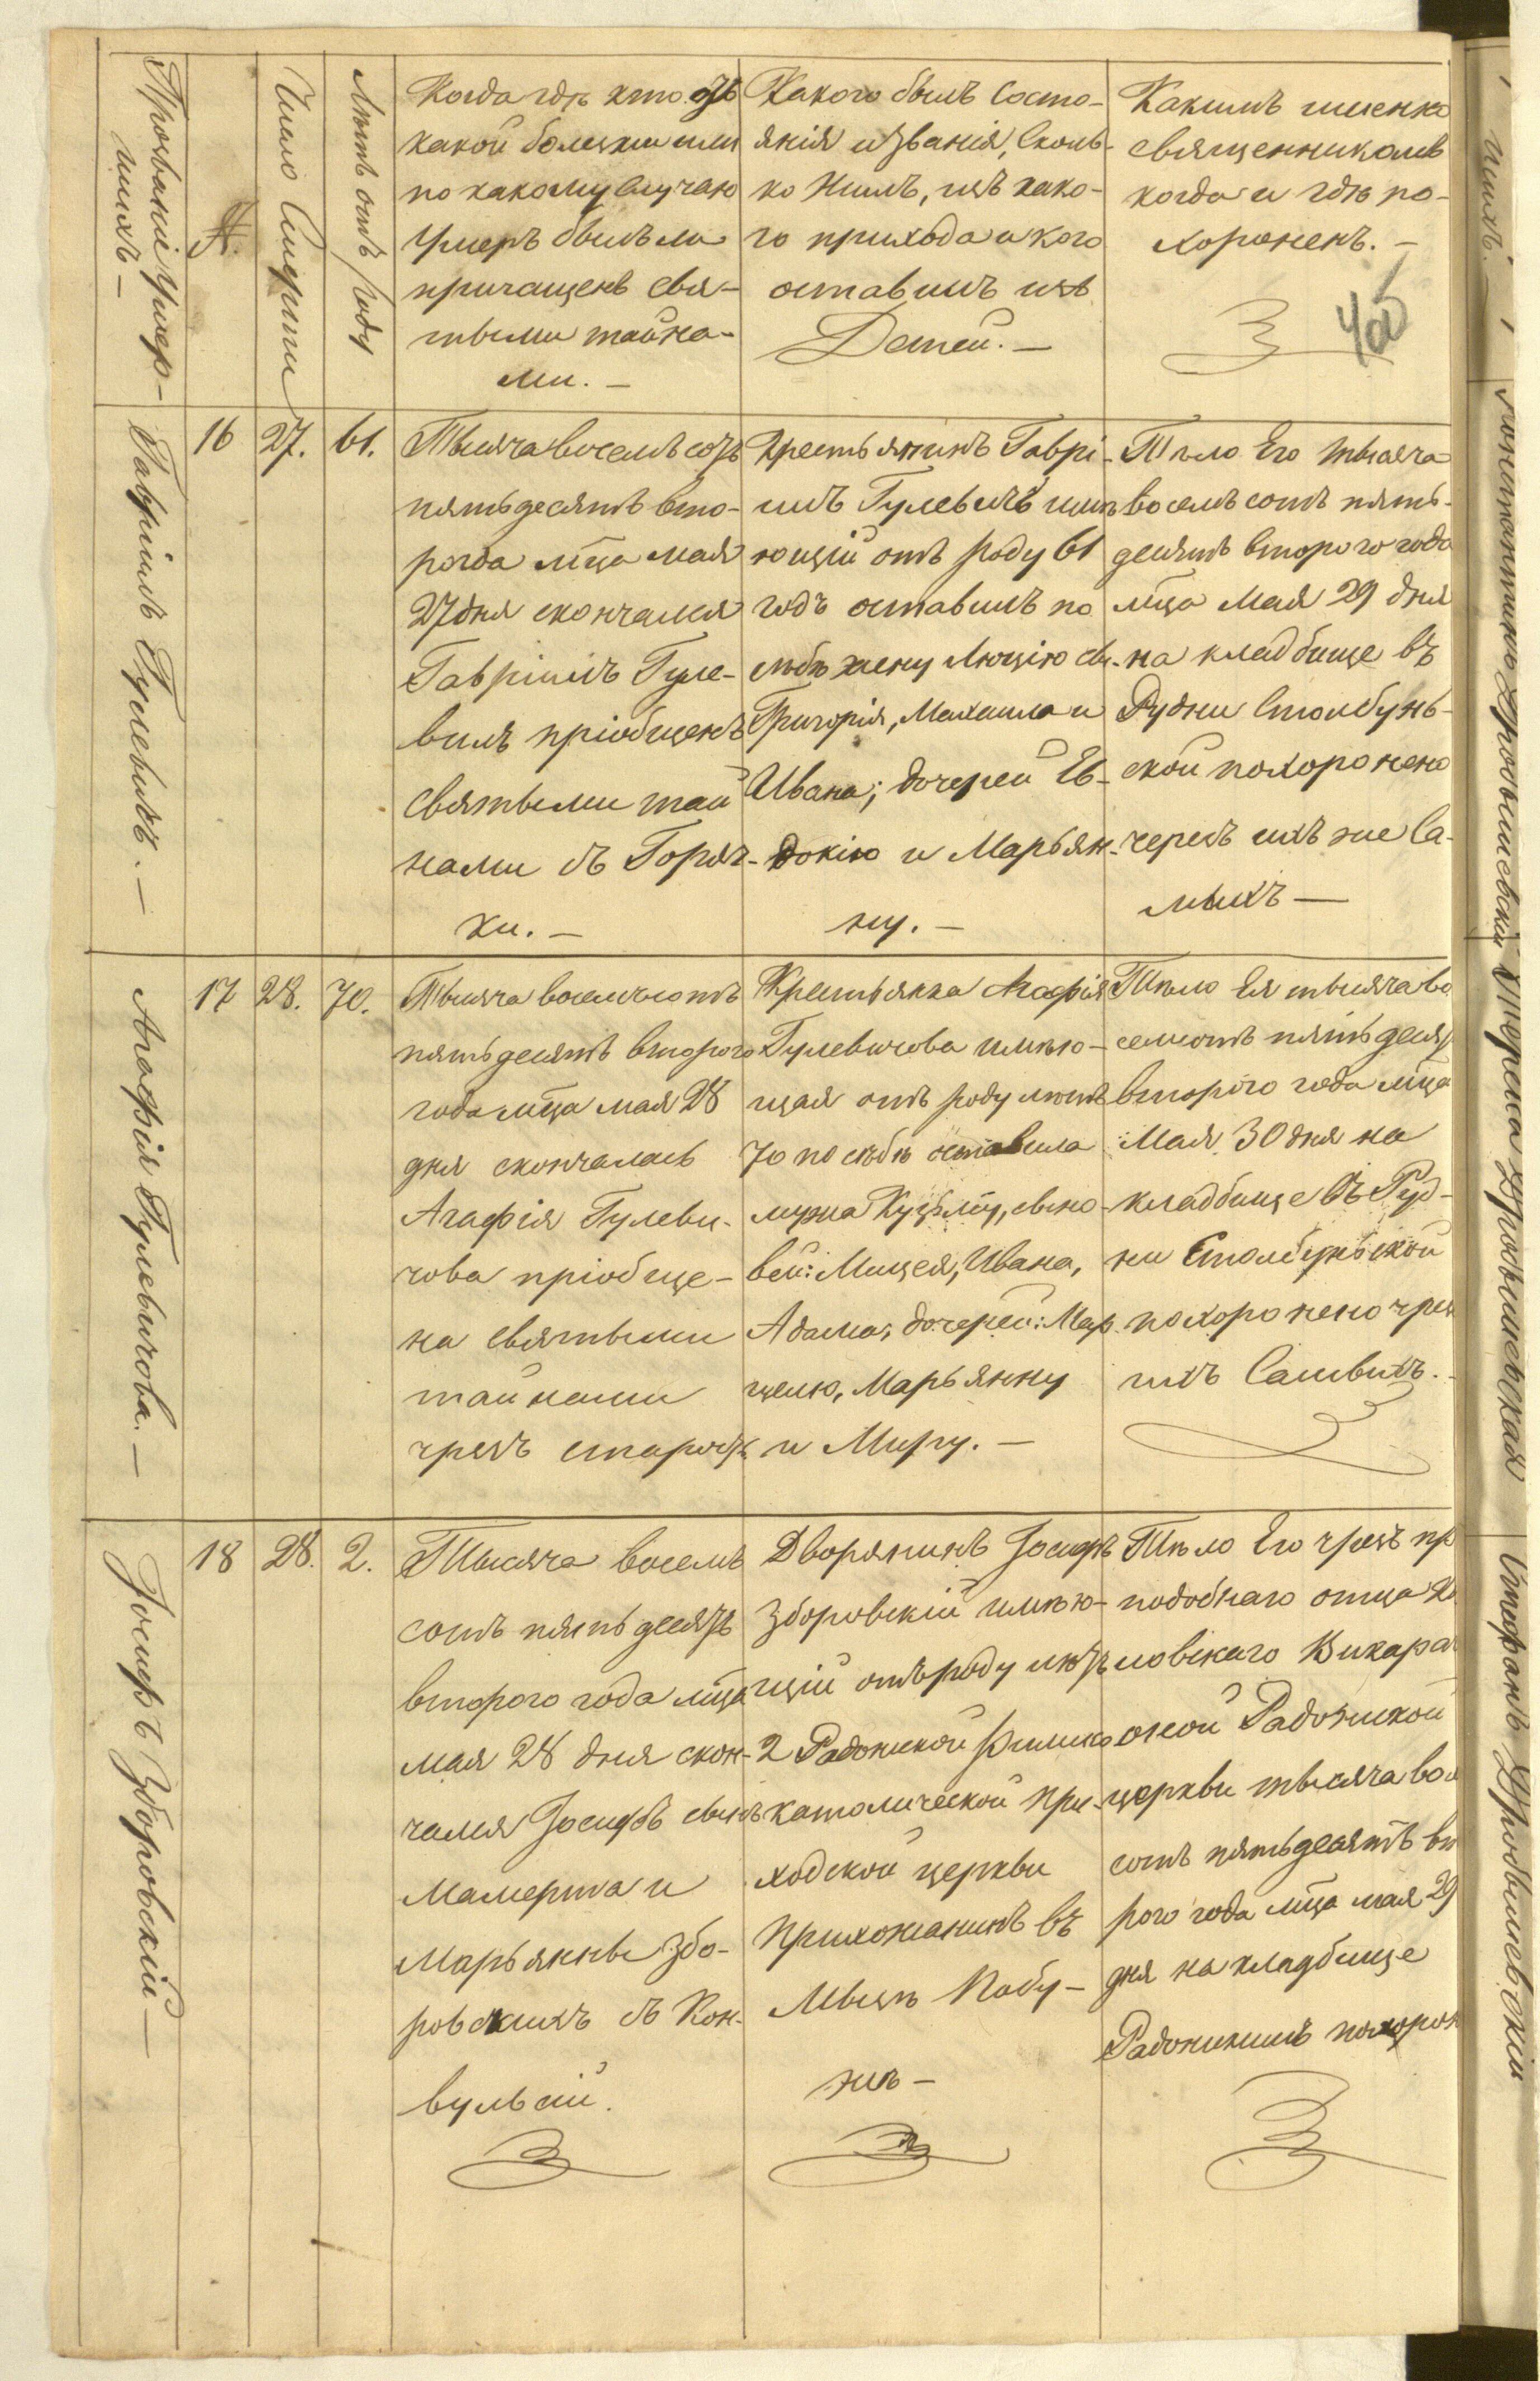 Прозваніе Умер-
шихъ —
№.
Число Смерти
Лѣтъ отъ роду
Когда гдѣ кто отъ
какой болезни или
по какому случаю
Умеръ былъ ли
причащенъ свя-
тыми тайна-
ми. —
Какого былъ Состо-
янія и Званія, Сколь-
ко Жилъ, изъ како-
го прихода и кого
оставилъ изъ
Детей. —
Какимъ именно
священникомъ
когда и гдѣ по-
хороненъ. —
Гавріилъ Гулевичъ. —
16
27.
61.
Тысяча восемьсотъ
пятьдесятъ вто-
рога мѣца мая
27 дня скончался
Гавріилъ Гуле-
вичъ пріобщенъ
святыми тай
нами съ Горяч-
ки. —
Крестьянинъ Гаврі-
илъ Гулевичъ имѣ
ющій отъ роду 61
годъ оставилъ по
себѣ жену Люцію сы.
Григорія, Михаила и
Ивана; дочерей Ев-
докію и Марьян-
ну. —
Тѣло Его тысяча
восемьсотъ пять-
десятъ второго года
мѣца Мая 29 дня
на кладбище въ
Рудни Столбунь-
ской похоронено
черезъ ихъ же Са-
мыхъ —
Агафія Гулевичова. —
17
28.
70.
Тысяча восемьсотъ
пятьдесятъ второго
года мѣца мая 28
дня скончалась
Агафія Гулеви-
чова пріобще-
на святыми
тайнами
чрезъ старость
Крестьянка Агафія
Гулевичова имѣю-
щая отъ роду лѣтъ
70 по себѣ оставила
мужа Кузьму, сыно-
вей: Мицея, Ивана,
Адама; дочерей: Мар
целю, Марьянну
и Миру. —
Тѣло Ея тысяча во
семьсотъ пятьдеся
второго года мѣца
Мая 30 дня на
кладбище въ Руд-
ни Столбунской
похоронено чрез
ихъ Самыхъ.
Іосифъ Зборовскій —
18
28.
2.
Тысяча восемь
сотъ пятьдесятъ
второго года мѣца
мая 28 дня скон-
чался Іосифъ сынъ
Мамерта и
Марьянны Збо-
ровскихъ съ Кон-
вульсій.
Дворянинъ Іосифъ
Зборовскій имѣю-
щій отъ роду лѣтъ
2 Радожской Римско
католической при-
ходской церкви
прихожанинъ въ
Тѣло Его чрезъ пр
подобнаго отца
ловскаго Викара
оной Радожской
церкви тысяча вос
сотъ пятьдесятъ вт
рого года мѣца мая 29
дня на кладбище
Радожскимъ похорон